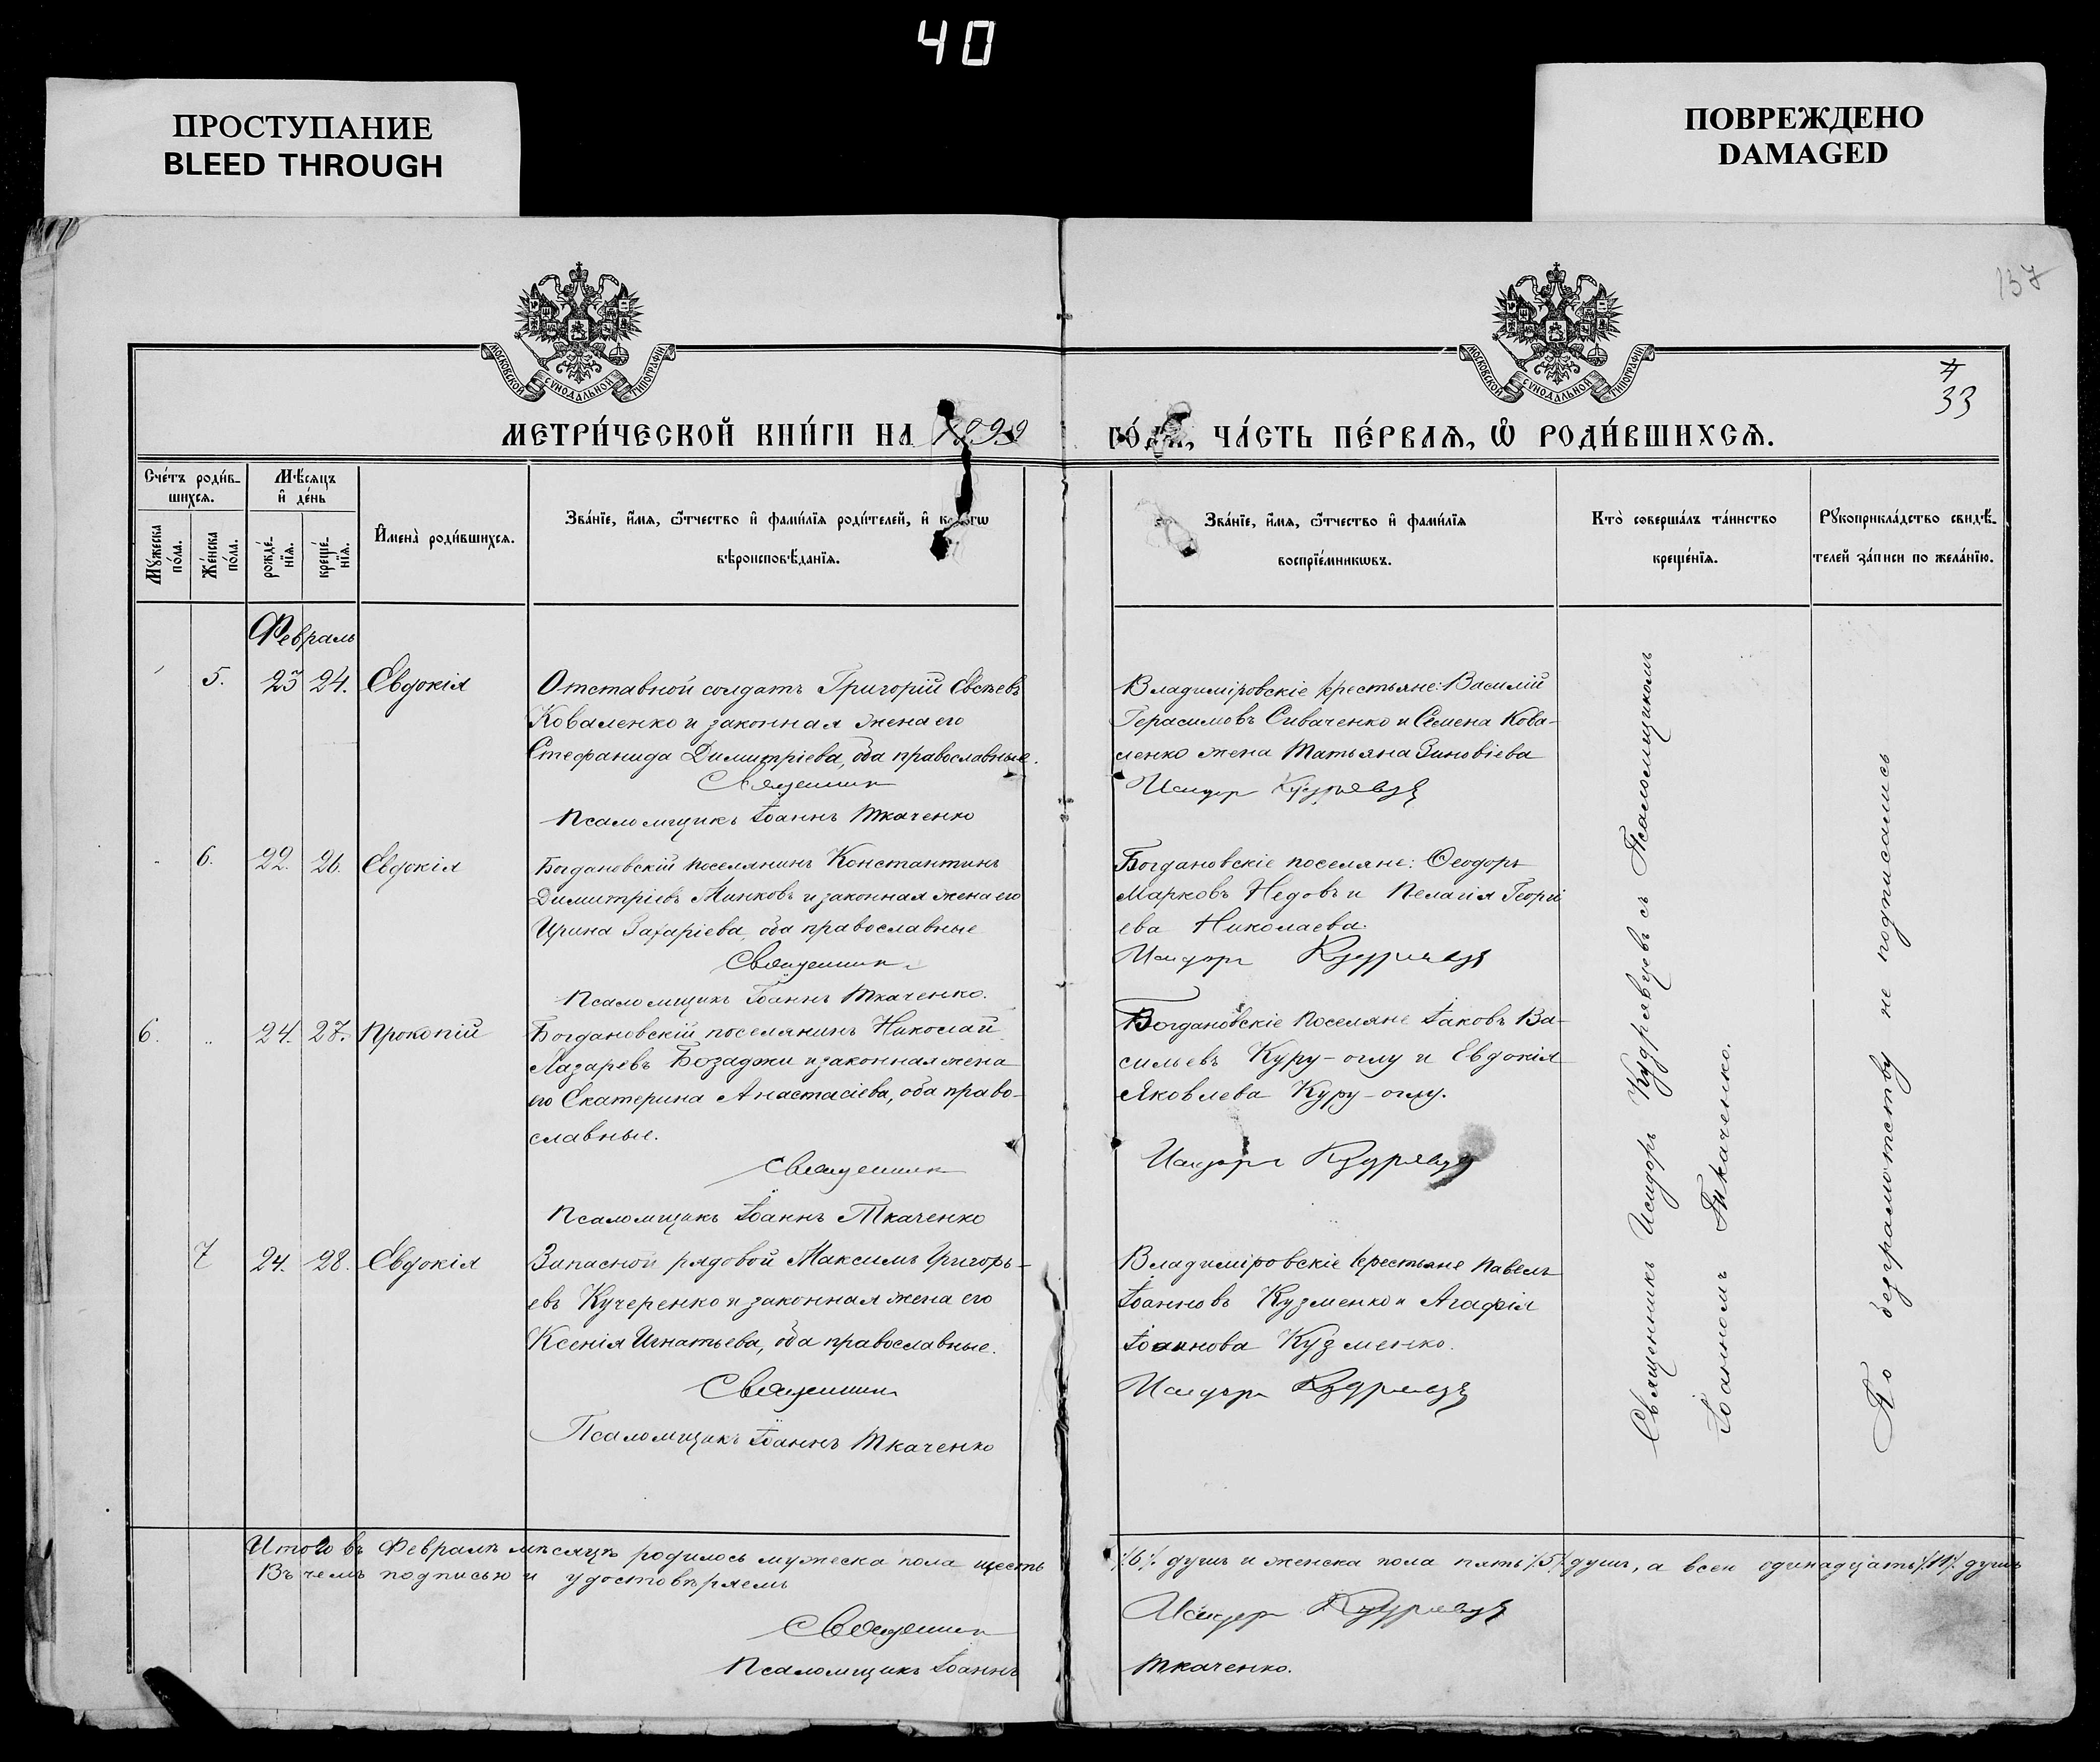 40
ПРОСТУПАНИЕ
BLEED THROUGH
ПОВРЕЖДЕНО
DAMAGED
137
33
МОСКОВСКОЙ СѴНОДАЛЬНОЙ ТИПОГРАФІИ
МОСКОВСКОЙ СѴНОДАЛЬНОЙ ТИПОГРАФІИ
МЕТРИ́ЧЕСКОЙ КНИ́ГИ НА 1899
ЧА́СТЬ ПЕ́РВАѦ, Ѡ РОДИ́ВШИХСѦ.
Сче́тъ роди́в-
шихсѧ.
Мѣ́сѧцъ
и҆ де́нь
Мꙋ́жеска
по́ла.
Же́нска
по́ла.
рожде́-
нїѧ.
креще́-
нїѧ.
И҆мена̀ роди́вшихсѧ.
Зва́нїе, и҆́мѧ, ѻ҆́тчество и҆ фами́лїѧ роди́телей, и҆
вѣроисповѣ́данїѧ.
Зва́нїе, и҆́мѧ, ѻ҆́тчество и҆ фами́лїѧ
воспрїе́мникѡвъ.
Кто̀ соверша́лъ та́инство
креще́нїѧ.
Рꙋкоприкла́дство свидѣ́-
телей за́писи по жела́нїю.
Февраль
5. 23 24. Евдокія
Отставной солдатъ Григорій Евсѣевъ
Коваленко и законная жена его
Стефанида Димитріева, оба православные.
Священник
Псаломщикъ Іоаннъ Ткаченко
Владиміровскіе крестьяне: Василій
Герасимовъ Сиваченко и Семена Кова-
ленко жена Татьяна Зиновіева
Исидоръ Кудрявцевъ
6. 22. 26. Евдокія
Богдановскій поселянинъ Константинъ
Димитріевъ Минковъ и законная жена его
Ирина Захаріева, оба православные
Священникъ
Псаломщикъ Іоаннъ Ткаченко.
Богдановскіе поселяне: Ѳеодоръ
Марковъ Недовъ и Пелагія Георгі
ева Николаева.
Исидоръ Кудрявцевъ
6. „ 24. 27. Прокопій
Богдановскій поселянинъ Николай
Лазаревъ Бозаджи и законная жена
его Екатерина Анастасіева, оба право-
славные.
Священникъ
Псаломщикъ Іоаннъ Ткаченко
Богдановскіе поселяне Іаковъ Ва-
сильевъ Куру-оглу и Евдокія
Яковлева Куру-оглу.
Исидоръ Кудрявцевъ
7 24. 28. Евдокія
Запасной рядовой Максимъ Григорь-
евъ Кучеренко и законная жена его
Ксенія Игнатьева, оба православные.
Священникъ
Псаломщикъ Іоаннъ Ткаченко
Владиміровскіе крестьяне Павелъ
Іоанновъ Кузменко и Агафія
Іоаннова Кузменко.
Исидоръ Кудрявцевъ
Священникъ Исидоръ Кудрявцевъ съ Псаломщикомъ
Іоанномъ Ткаченко.
По безграмотству не подписались
Итого въ Февралѣ мѣсяцѣ родилось мужеска пола шесть /6/ душъ и женска пола пять /5/ душъ, а всего одинадцать /11/ душъ
Въ чемъ подписью и удостовѣряемъ
Священникъ Исидоръ Кудрявцевъ
Псаломщикъ Іоаннъ Ткаченко.